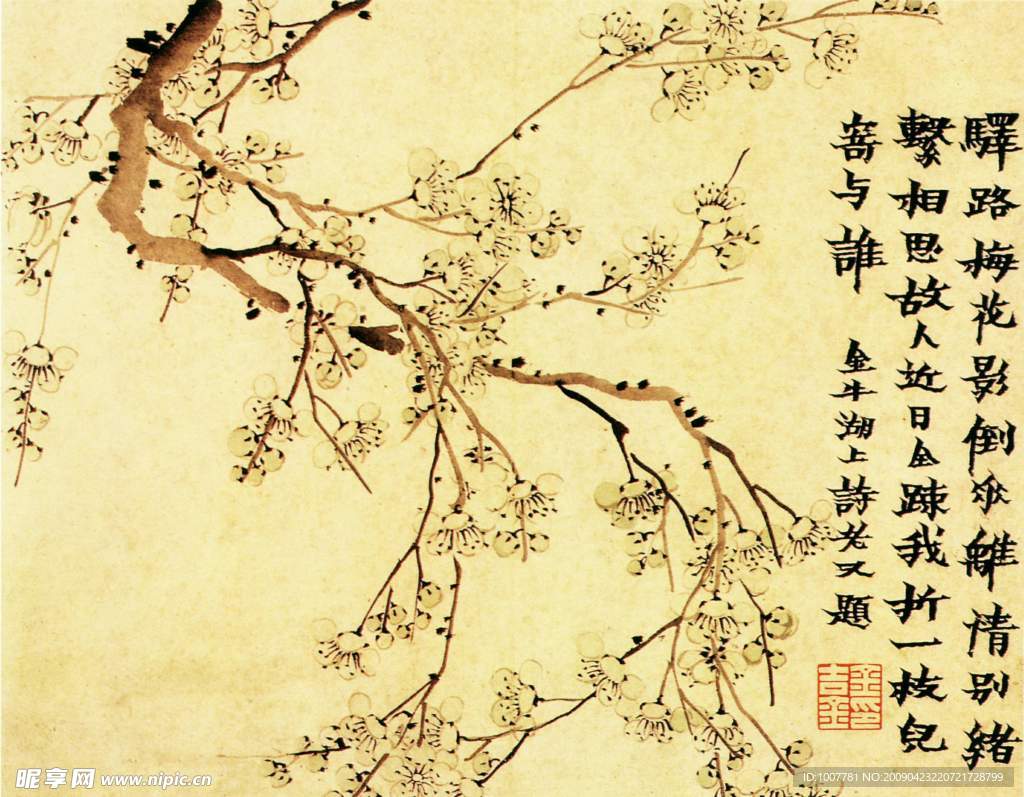 驛路梅花影倒垂離情別緒
繫相思故人近日全踈我折一枝兒
寄与誰
金牛湖上詩老又題
金吉金印
昵享网 www.nipic.cn
ID:1007781 NO:20090423220721728799